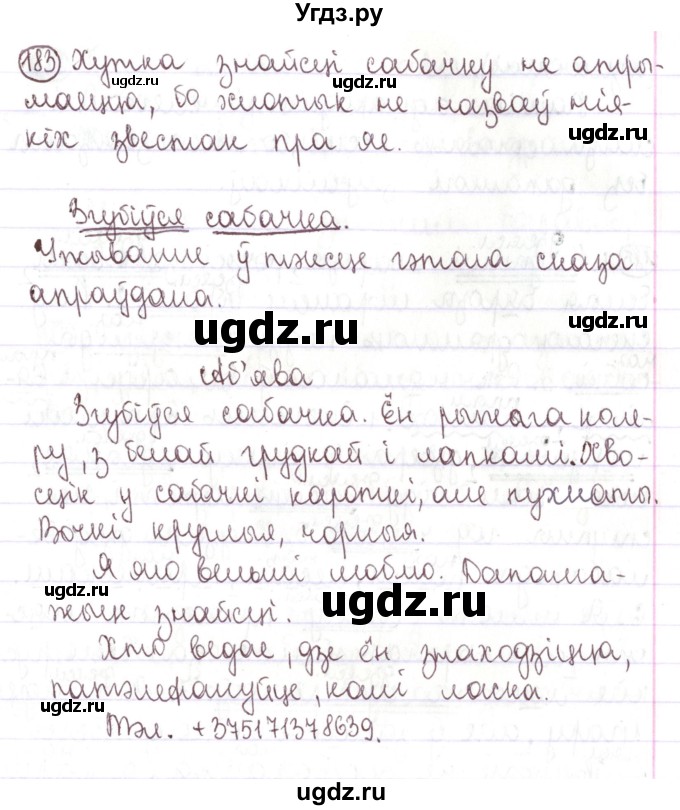 Угдз.ру
183 Хутка знайсці сабачку не атры-
ugdz.ru
ugdz.ru
маецца, бо хлопчык не назваў нія-
кіх звестак пра яе.
ugdz.ru
Згубіўся сабачка.
Ужыванне ў тэксце гэтага сказа
апраўдана.
ugdz.ru
ugdz.ru
ugdz.ru
Аб'ява
Згубіўся сабачка. Ён рыжага коле-
ру, з белай грудкай і лапкамі. Хво-
ugdz.ru
ugdz.ru
сцік у сабачкі кароткі, але пухнаты.
Вочкі круглыя, чорныя.
Я яго вельмі люблю. Дапама-
ugdz.ru
ugdz.ru
ugdz.ru
жыце знайсці.
Хто ведае, дзе ён знаходзіцца,
патэлефануйце, калі ласка.
ugdz.ru
ugdz.ru
Тэл. +375171378639.
ugdz.ru